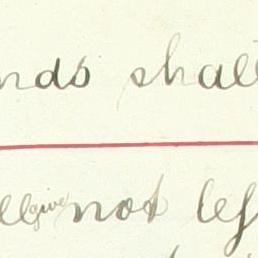 nds shall
ll give not les